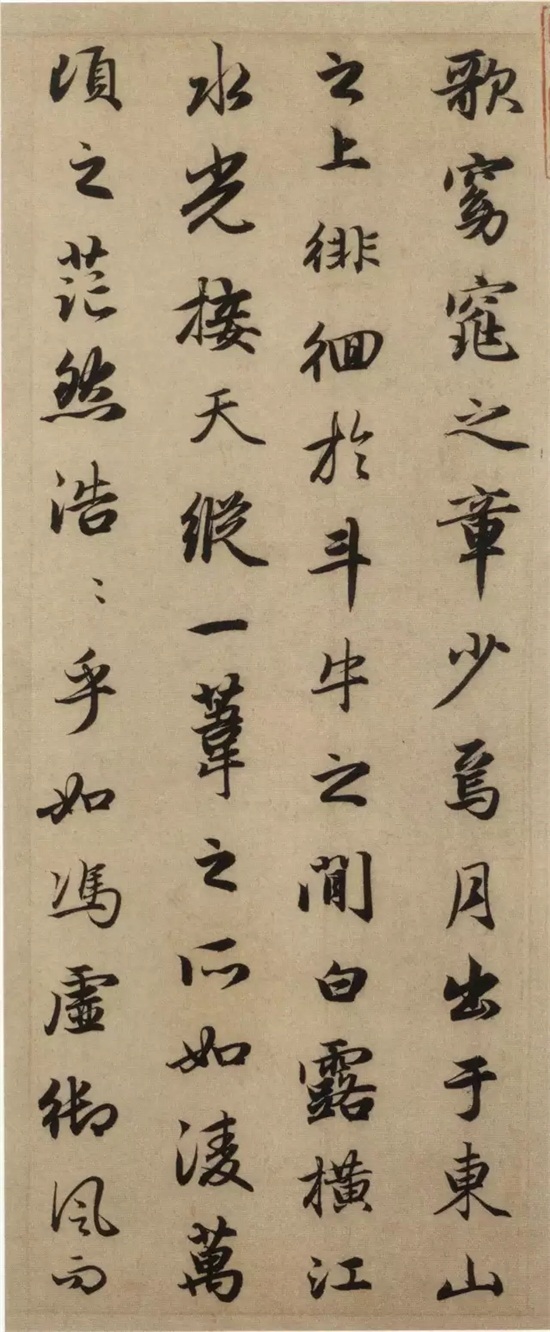 歌窈窕之章少焉月出于東山
之上徘徊於斗牛之間白露橫江
水光接天縱一葦之所如淩萬
頃之茫然浩〻乎如馮虛御風而